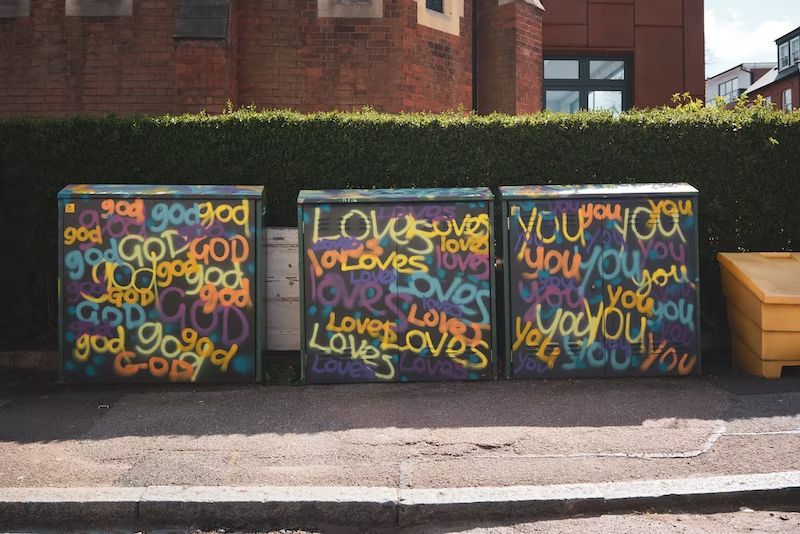 god god god
god GOD GOD
god god god god
god god god
GOD GOD
god god god
GOD god
Loves Loves
Loves Loves Loves
Loves Loves
Loves Loves
Loves Loves
Loves Loves
Loves Loves
YOU you YOU you
you you you
you you you
you you you
you you you
you you you